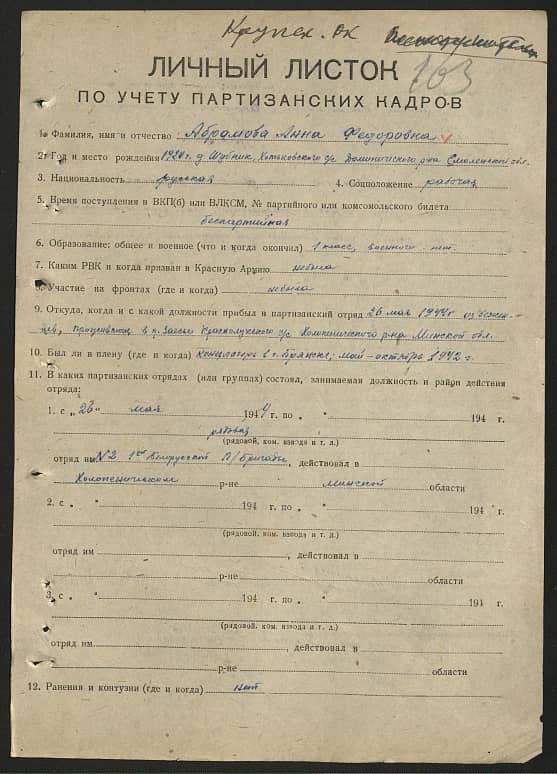 Крупск. РК
163
ЛИЧНЫЙ ЛИСТОК
ПО УЧЕТУ ПАРТИЗАНСКИХ КАДРОВ
1. Фамилия, имя и отчество Абрамова Анна Федоровна
2. Год и место рождения д. Шубник, Хотьковского с/с. Думиничского р-на Смоленской обл.
3. Национальность русская 4. Соцположение рабочая
5. Время поступления в ВКП(б) или ВЛКСМ, № партийного или комсомольского билета
беспартийная
6. Образование: общее и военное (что и когда окончил) 1 класс, военного - нет.
7. Каким РВК и когда призван в Красную Армию небыла
8. Участие на фронтах (где и когда) небыла
9. Откуда, когда и с какой должности прибыл в партизанский отряд 26 мая 1944г из бежен-
цев, проживающ. в д. Краснолукского с/с Холопеничского р-на Минской обл.
10. Был ли в плену (где и когда) концлагерь в г. Брянске; май-октябрь 1942 г.
11. В каких партизанских отрядах (или группах) состоял, занимаемая должность и район действия
отряда:
1. с „26“ мая 1944 г. по „ “ 194 г.
рядовая
(рядовой, ком. взвода и т. д.)
отряд им. №2 1ой Белорусской П/Бригады, действовал в
Холопеничском р-не Минской области
2. с „ “ 194 г. по „ “ 194 г.
(рядовой, ком. взвода и т. д.)
отряд им , действовал в
р-не области
3. с „ “ 194 г. по „ “ 194 г.
(рядовой, ком. взвода и т. д.)
отряд им. , действовал в
р-не области
12. Ранения и контузии (где и когда) нет